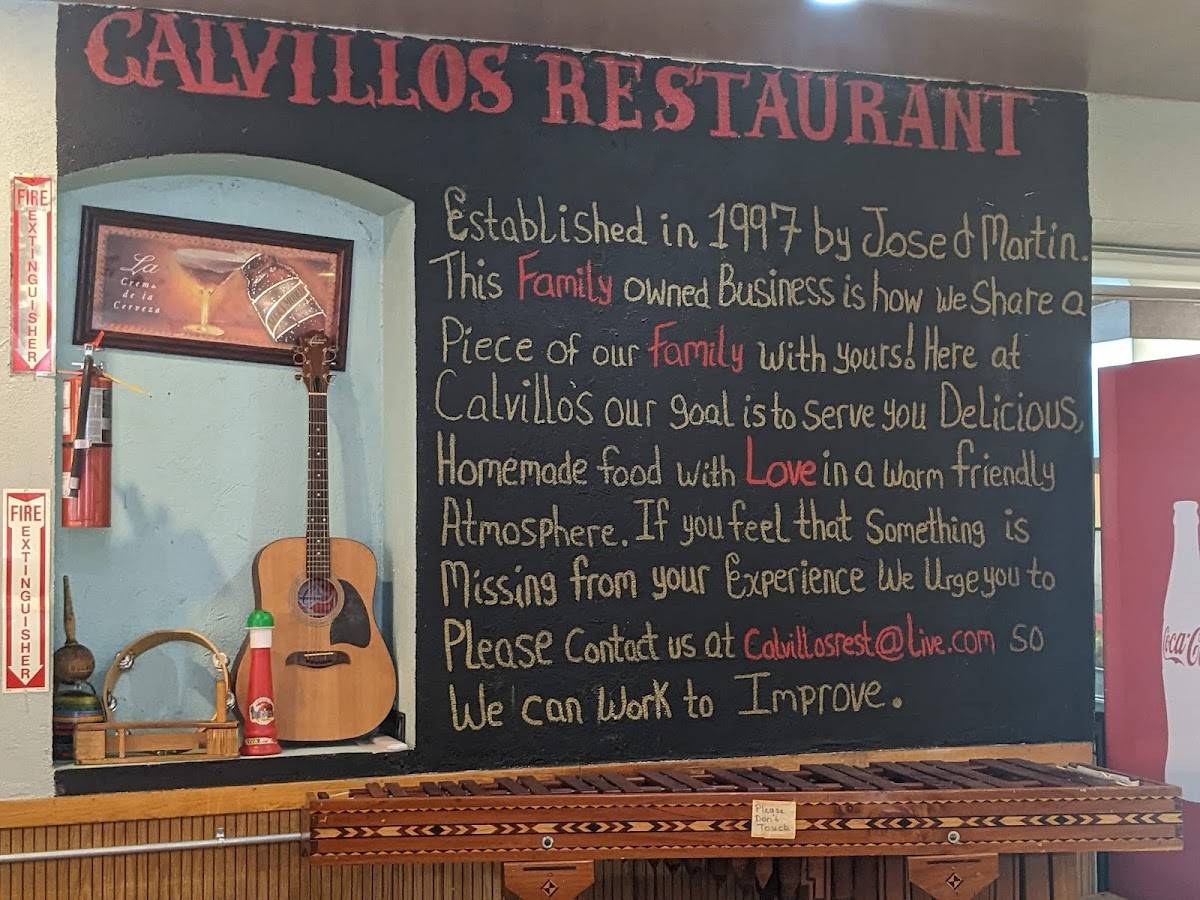 CALVILLOS RESTAURANT
Established in 1997 by Jose & Martin.
This Family owned Business is how we share a
Piece of our Family with yours! Here at
Calvillo's our goal is to serve you Delicious,
Homemade food with Love in a warm friendly
Atmosphere. If you feel that something is
Missing from your Experience We Urge you to
Please Contact us at Calvillosrest@Live.com so
We can Work to Improve.
FIRE
EXTINGUISHER
FIRE
EXTINGUISHER
La
Crema
de la
Cerveza
Please
Don't
Touch
Coca-C